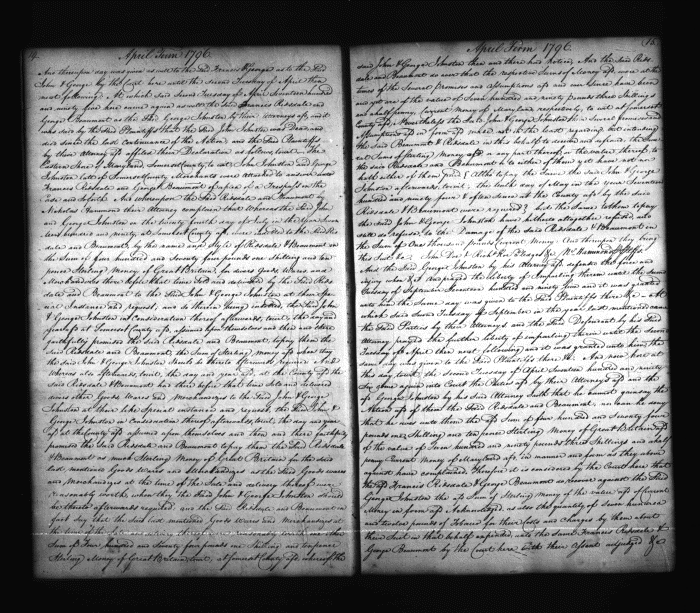 14.
April Term 1796.
And thereupon day was given as well to the said Francis & George as to the said
John & George by the Court here until the second Tuesday of April then
next following. At which said second Tuesday of April seventeen hundred
and ninety four here came again as well the said Francis Ridsdale and
George Beaumont as the said George Johnston by their attorneys afd. and it
was said by the said Plaintiffs that the said John Johnston was Dead and
died since the last Continuance of the Action and the said Plaintiffs
by their Attorney afd. filed their Declaration as follows, to wit. The
Eastern Shore of Maryland, Somerset County, to wit, John Johnston and George
Johnston late of Somerset County Merchants were attached to answer unto
Francis Ridsdale and George Beaumont of a plea of a Trespass on the
Case and so forth. And whereupon the said Ridsdale and Beaumont by
Nicholas Hammond their Attorney complain that Whereas the said John
and George Johnston on the twenty sixth day of July in the year seven
teen hundred and ninety, at Somerset County afd. were indebted to the said Rids
dale and Beaumont, by the name and style of Ridsdale & Beaumont in
the Sum of four hundred and seventy four pounds one shilling and ten
pence Sterling Money of Great Britain, for divers Goods Wares and
Merchandizes there before that time sold and delivered by the said Rids
dale and Beaumont to the said John & George Johnston at their special
Instance and request, and so thereof being indebted, the said John
& George Johnston in Consideration thereof afterwards, to wit, the day and
year afd. at Somerset County afd. assumed upon themselves and then and there
faithfully promised the said Ridsdale and Beaumont, to pay them the
said Ridsdale and Beaumont the Sum of Sterling Money afd. when they
the said John & George Johnston should be thereto afterwards required. And
Whereas also afterwards, to wit, the day and year afd. at the County afd. the
said Ridsdale & Beaumont had there before that time sold and delivered
divers other Goods Wares and Merchandizes to the said John & George
Johnston at their like special instance and request, the said John &
George Johnston in Consideration thereof afterwards, to wit, the day and year
afd. at the County afd. assumed upon themselves and then and there faithfully
promised the said Ridsdale and Beaumont to pay them the said Ridsdale
& Beaumont as much Sterling Money of Great Britain for the said
last mentioned Goods Wares and Merchandizes as the said Goods Wares
and Merchandizes at the time of the Sale and delivery thereof were
reasonably worth, when they the said John & George Johnston should
be thereto afterwards required, and the said Ridsdale and Beaumont in
fact say that the said last mentioned Goods Wares and Merchandizes at
the time of the Sale and delivery thereof were reasonably worth the other
Sum of Four hundred and Seventy four pounds one Shilling and ten pence
Sterling Money of Great Britain, to wit, at Somerset County afd. whereof the
15.
April Term 1796.
said John & George Johnston then and there had Notice. And the said Rids
dale and Beaumont do aver that the respective Sums of Money afd. were at the
times of the several promises and assumptions afd. and ever since have been
and yet are of the value of Seven hundred and ninety pounds three Shillings
and half penny Current Money of Maryland respectively, to wit at Somerset
County afd. Nevertheless the said John & George Johnston their several promises and
Assumptions in form afd. made not in the least regarding but intending
the said Beaumont & Ridsdale in this behalf to deceive and defraud, the sev
eral Sums of Sterling Money afd. or any part thereof or the value thereof, to
the said Ridsdale and Beaumont or to either of them yet have not nor
hath either of them paid (Altho to pay the same the said John & George
Johnston afterwards, to wit the tenth day of May in the year Seventeen
hundred and ninety four & often since at the County afd. by the said
Ridsdale & Beaumont were required) but the same to them to pay
the said John & George Johnston have hitherto altogether refused, and
still do refuse, to the Damage of the said Ridsdale & Beaumont in
the Sum of One thousand pounds Current Money. And thereupon they bring
this Suit &c. John Doe & Rich'd Roe Pledges &c. Wm. Hammond Atty Plffs.
And the said George Johnston by his Attorney afd. defends the force and
injury when &c. and prayed the liberty of Imparling thereto until the second
Tuesday of September Seventeen hundred and ninety four and it was granted
unto him the same day was given to the said Plaintiffs there &c. At
which said second Tuesday of September in the year last mentioned came
the said Parties by their Attorneys and the said Defendant by his said
Attorney prayed the further liberty of imparling thereto until the second
Tuesday of April then next following and it was granted unto him, the
same day was given to the said Plaintiffs there &c. And now here at
this day to wit, the second Tuesday of April Seventeen hundred and ninety
Six come again into Court the Parties afd. by their Attorneys afd. and the
said George Johnston by his said Attorney saith that he cannot gainsay the
Action afd. of them the said Ridsdale and Beaumont, nor can he say
that he owes unto them the afd. Sum of four hundred and Seventy four
pounds one Shilling and ten pence Sterling Money of Great Britain afd.
of the value of Seven hundred and ninety pounds three Shillings and half
penny Current Money of Maryland afd. in manner and form as they above
against have complained. Therefore it is considered by the Court here that
the afd. Francis Ridsdale & George Beaumont do recover against the said
George Johnston the afd. Sum of Sterling Money of the value afd. Current
Money in form afd. Acknowledged, as also the quantity of Seven hundred
and twelve pounds of Tobacco for their Costs and Charges by them about
their Suit in that behalf expended, unto the same Francis Ridsdale &
George Beaumont by the Court here with their Assent adjudged &c.